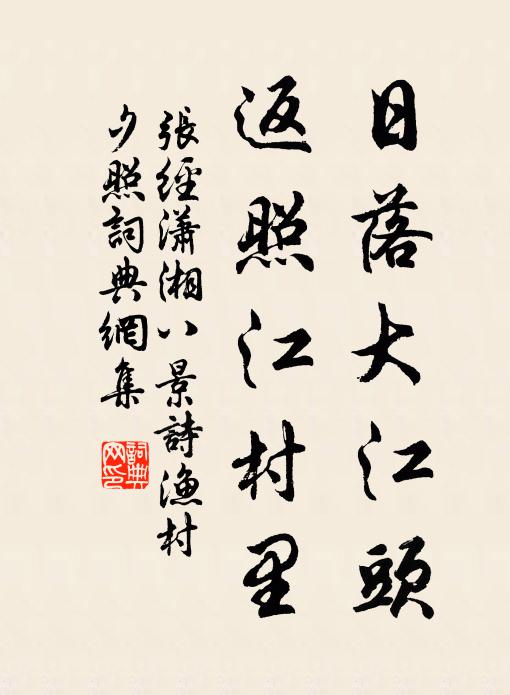 日落大江頭
返照江村里
張經瀟湘八景詩漁村
夕照詞典網集
詞典
网印